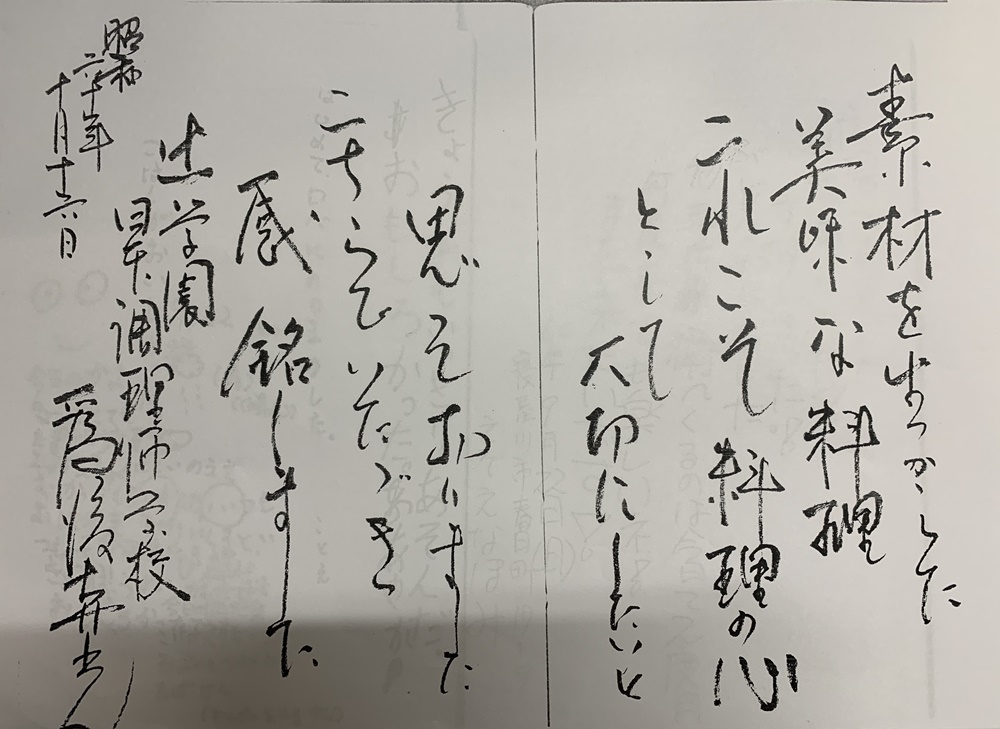 素材を生かした
美味な料理
これこそ料理の心
として
大切にしたいと
思っておりました
こちらでいただき
感銘しました。
辻学園
日本調理師学校
為後喜光
昭和
六十年
十月十六日